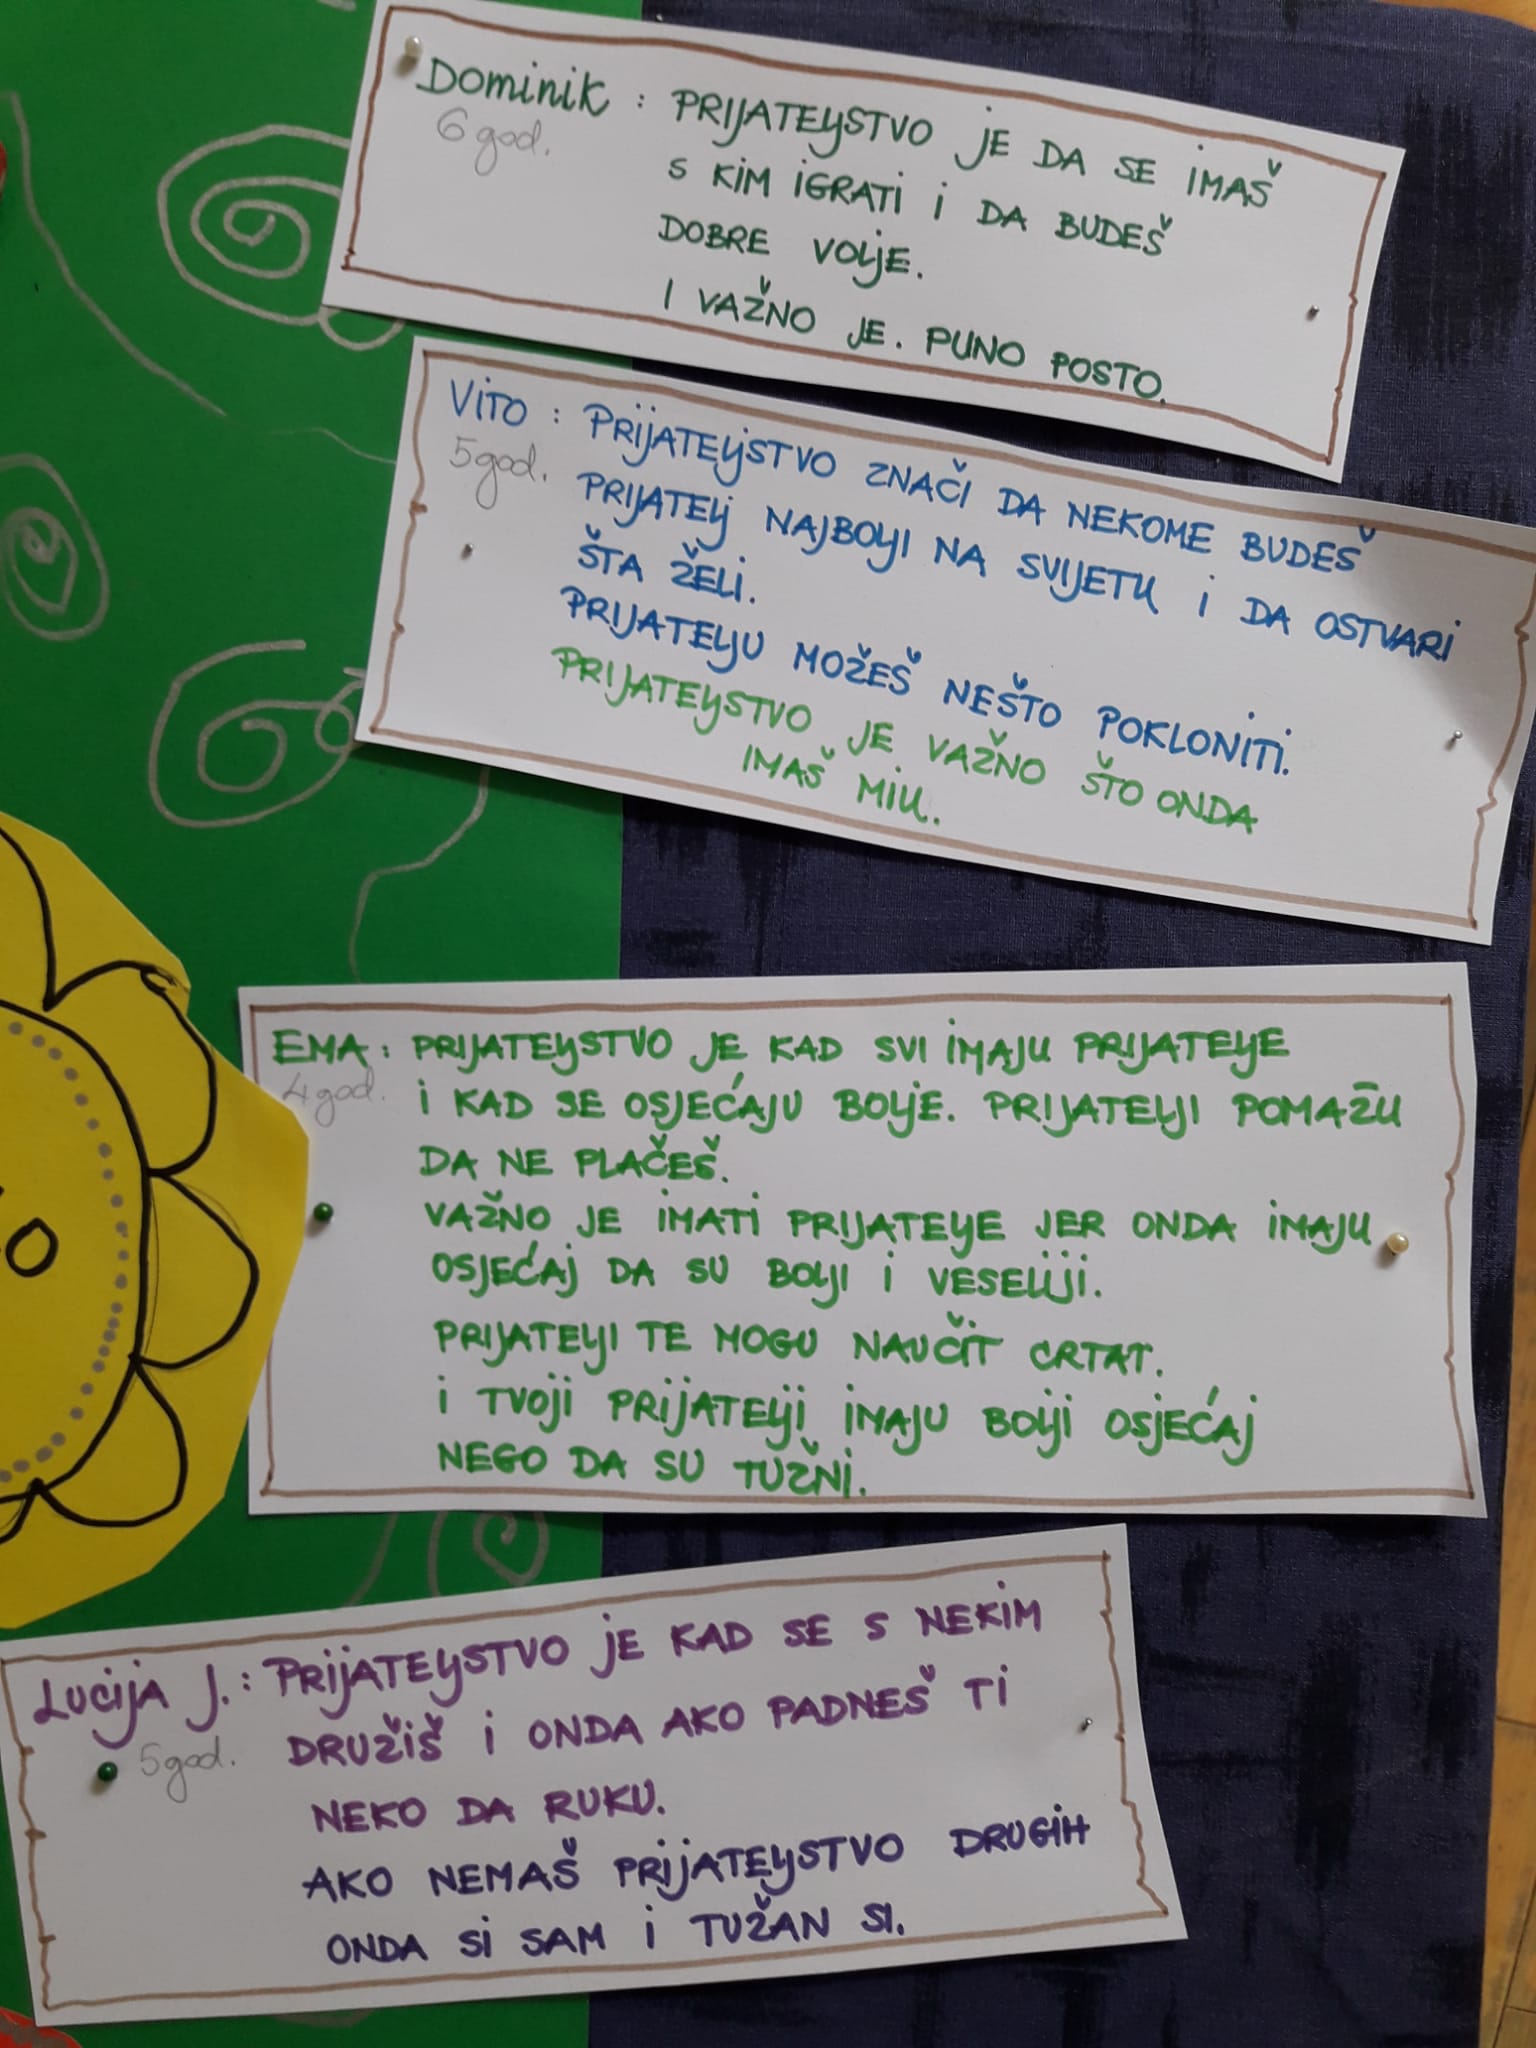 Dominik : PRIJATELJSTVO JE DA SE IMAŠ
6 god.
S KIM IGRATI I DA BUDEŠ
DOBRE VOLJE.
I VAŽNO JE. PUNO POSTO.
VITO : PRIJATELJSTVO ZNAČI DA NEKOME BUDEŠ
5 god.
PRIJATELJ NAJBOLJI NA SVIJETU I DA OSTVARI
ŠTA ŽELI.
PRIJATELJU MOŽEŠ NEŠTO POKLONITI.
PRIJATELJSTVO JE VAŽNO ŠTO ONDA
IMAŠ MIU.
EMA : PRIJATELJSTVO JE KAD SVI IMAJU PRIJATELJE
4 god.
I KAD SE OSJEĆAJU BOLJE. PRIJATELJI POMAŽU
DA NE PLAČEŠ.
VAŽNO JE IMATI PRIJATELJE JER ONDA IMAJU
OSJEĆAJ DA SU BOLJI I VESELIJI.
PRIJATELJI TE MOGU NAUČIT CRTAT.
I TVOJI PRIJATELJI IMAJU BOLJI OSJEĆAJ
NEGO DA SU TUŽNI.
LUCIJA J. : PRIJATELJSTVO JE KAD SE S NEKIM
5 god.
DRUŽIŠ I ONDA AKO PADNEŠ TI
NEKO DA RUKU.
AKO NEMAŠ PRIJATELJSTVO DRUGIH
ONDA SI SAM I TUŽAN SI.